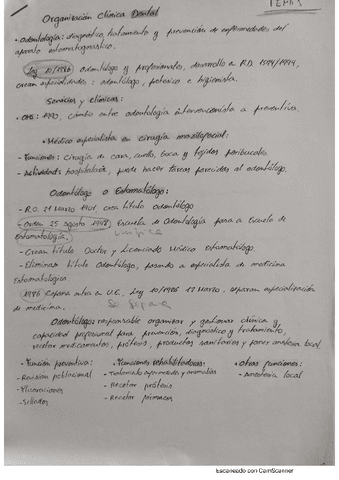 TEMA 1
Organización Clínica Dental
• Odontología: diagnóstico, tratamiento y prevención de enfermedades del
aparato estomatognático.
Ley 10/1986 odontólogo y profesionales, desarrollo a R.D. 1594/1994,
crean especialidades: odontólogo, protésico e higienista.
Servicios y clínicas:
• OMS: 1970, cambio entre odontología intervencionista a preventiva.
• Médico especialista en cirugía maxilofacial:
- Funciones: cirugía de cara, cuello, boca y tejidos peribucales.
- Actividad: hospitalaria, puede hacer tareas parecidas al odontólogo.
Odontólogo o Estomatólogo:
- R.O. 21 Marzo 1901, crea título odontólogo
- Orden 25 agosto 1948 Escuela de Odontología pasa a Escuela de
Estomatología.
- Crean título Doctor y Licenciado Médico Estomatólogo.
- Eliminan título Odontólogo, pasando a especialista de medicina
Estomatológica
1986 España entra en U.E., Ley 10/1986 17 Marzo, separan especialización
de medicina. se separa
Odontólogo: responsable organizar y gestionar clínica y
capacidad profesional para prevención, diagnóstico y tratamiento,
recetar medicamentos, prótesis, productos sanitarios y poner anestesia local
• Función preventiva: • Funciones rehabilitadoras: • Otras funciones:
- Revisión poblacional - Tratamiento enfermedades y anomalías - Anestesia local
- Fluoraciones - Recetar prótesis
- Sellados - Recetar fármacos
Escaneado con CamScanner